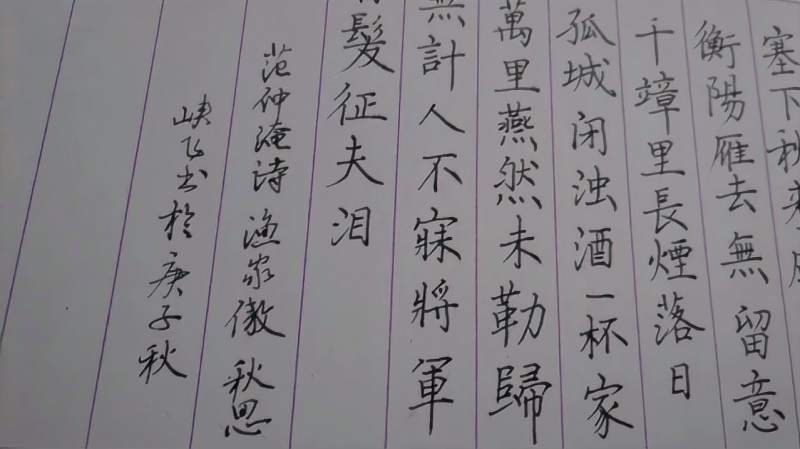 塞下秋來風
衡陽雁去無留意
千嶂里長煙落日
孤城闭浊酒一杯家
萬里燕然未勒歸
無計人不寐將軍
髮征夫泪
范仲淹诗 渔家傲 秋思
峡飞书於庚子秋